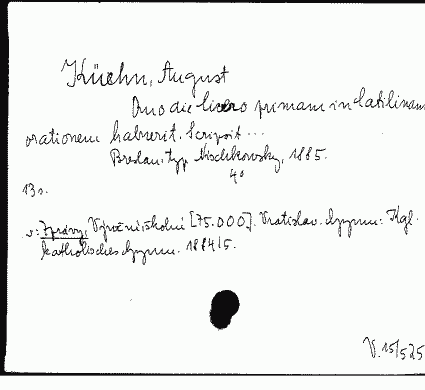 Küehn, August
Quo die Cicero primam in Catilinam
orationem habuerit. Scripsit ...
Breslau, typ. Nischkowsky, 1885.
4°
13 s.
v: Zprávy, Výroční školní [75.000]. Vratislav. Gymn. Kgl.
katholisches Gymn. 1884/5.
V. 15/525